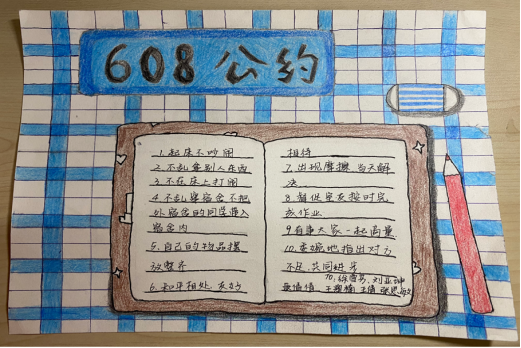 608公约
1.起床不吵闹
2.不乱拿别人东西
3.不在床上打闹
4.不乱串宿舍不把
外宿舍的同学带入
宿舍内
5.自己的物品摆
放整齐
6.和平相处 友好
相待
7.出现摩擦 当天解
决
8.督促室友按时完
成作业
9.有事大家一起商量
10.委婉地指出对方
不足,共同进步